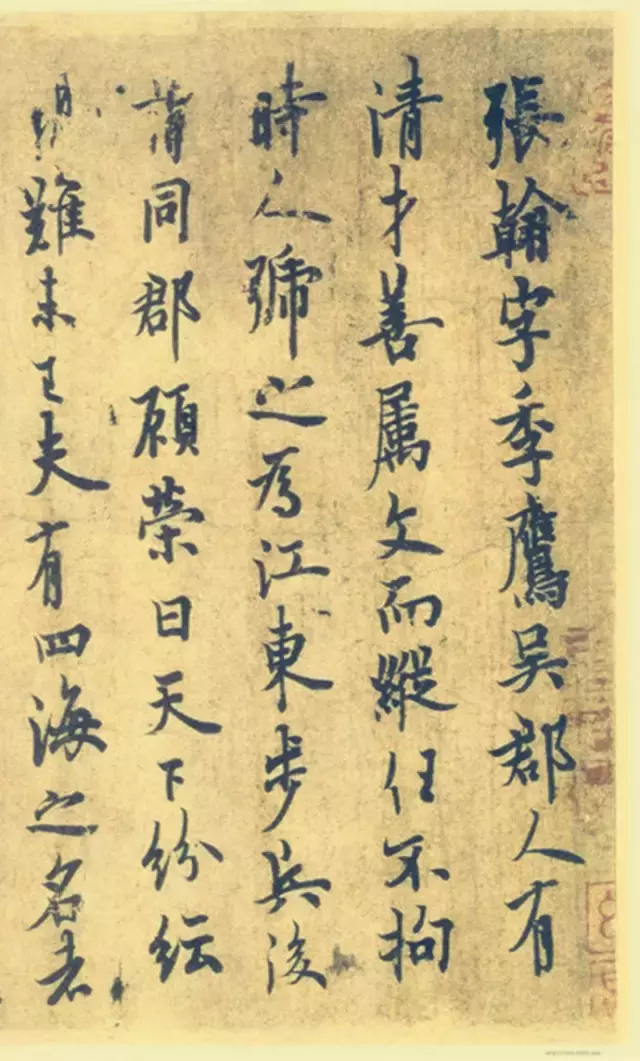 張翰字季鷹吳郡人有
清才善属文而縱任不拘
時人號之為江東步兵後
同郡顧榮曰天下紛紜
難未已夫有四海之名者